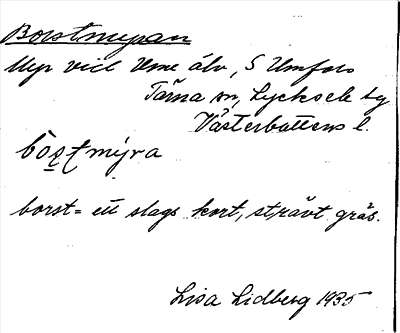 Borstmyran
Myr vid Ume älv, S Umfors
Tärna sn, Lycksele tg
Västerbottens l.
bòs̱tmýra
borst = ett slags kort, strävt gräs.
Lisa Lidberg 1935